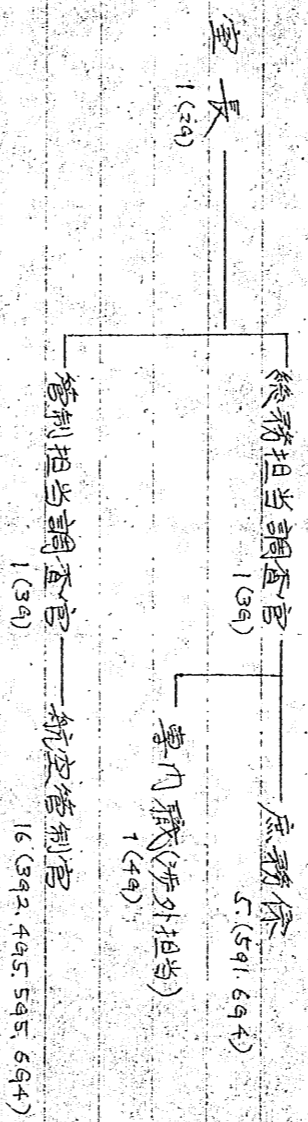 室長
1(2g)
総務担当調査官
1(3g)
庶務係
5.(5g1.6g4.)
専門職(渉外担当)
1(4g)
管制担当調査官
1(3g)
航空管制官
16(3g2.4g5.5g5.6g4)